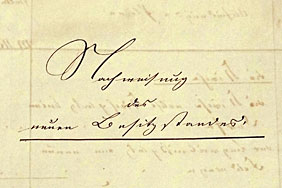 Nachweisung
des
neuen Besitzstandes.